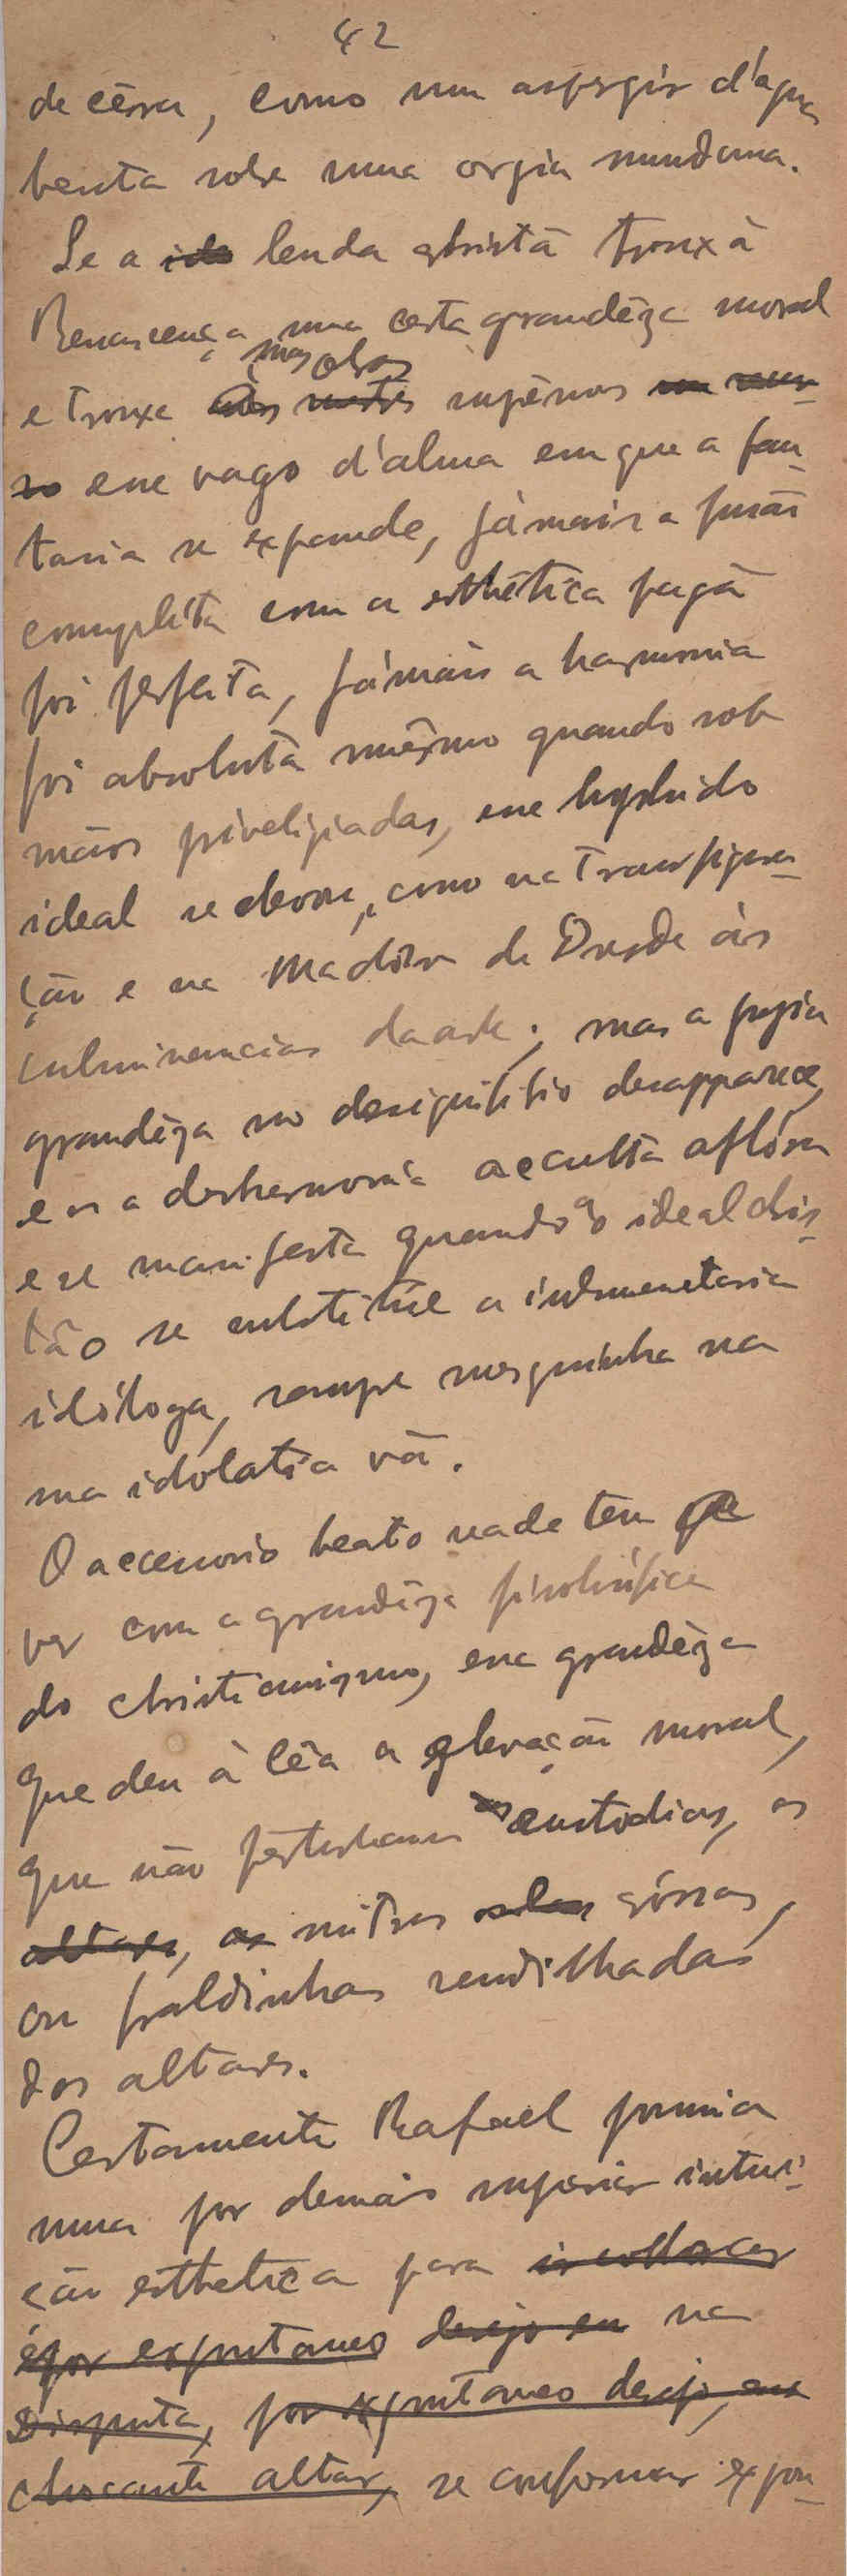 42
de cêra, como um aspergir d'agua
benta sobre uma orgia mundana.
Se a ~~ide~~ lenda christã troux à
Renascença uma certa grandêza moral
nas obras
e trouxe ~~às~~ supêrnas
esse vago d'alma em que a fan-
tasia se expande, jámais a fusão
complêta com a esthêtica pagã
foi perfeita, jámais a harmonia
foi absoluta mêsmo quando sob
mãos priveligiadas, esse hybrido
ideal se eleva, como na Transfigura-
ção e na Madôna de Dresde às
culminancias da arte; mas a propia
grandêza no desiquilibio desapparece,
e a desharmonia occulta aflóra
e se manifesta quando ao ideal chris-
tão se substitúe a indumentaria
idóloga, sempre mesquinha na
sua idolatia vã.
O accessorio beato nada tem que
ver com a grandêza philosófica
do christianismo, essa grandêza
que deu à têla a elevação moral,
que não perturbam ~~as~~ custodias, os
~~altares, as~~ mitras gôssas,
ou fraldinhas rendilhadas
dos altares.
Certamente Rafael possuia
uma por demais superior intui-
ção esthetica para ~~ir collocar~~
~~por expontaneo desejo~~ na
~~Disputa, por expontaneo desejo, esse~~
~~chocante altar,~~ se conformar expon-